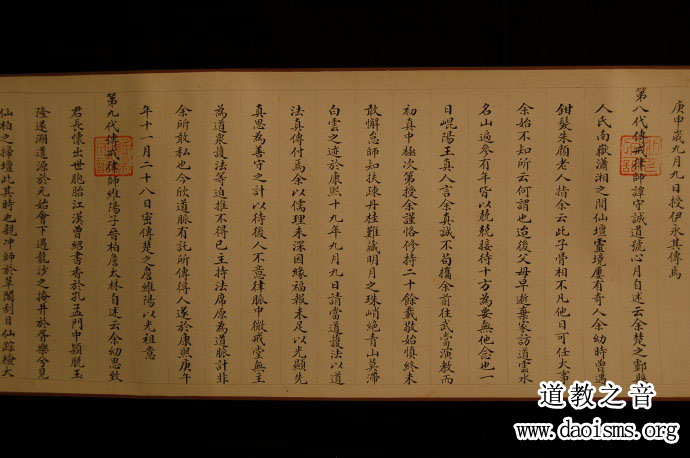 庚申歲九月九日授伊永其傳焉
第八代傳戒律師譚守誠道號心月自述云余楚之酃縣
人民南嶽瀟湘之間仙壇靈境屢有奇人余幼時曾遇
鉗髮朱顏老人指余云此子骨相不凡他日可任大事
余始不知所云何謂也迨後父母早逝棄家訪道雲水
名山遍參有年皆以兢兢接待十方為要無他念也一
日崐陽王真人言余真誠不苟攜余前往武當演教而
初真中極次第授余謹恪修持二十餘載敬始慎終未
敢懈怠師知扶疎丹桂難藏明月之珠峭絶青山莫滯
白雲之迹於康熙十九年九月九日請當道護法以道
法真傳付焉余以儒理未深因緣福報未足以光顯先
真思為善守之計以待後人不意律脈中微戒堂無主
為道衆護法等迫推不得已主持法席原為道脈計非
余所敢私也今欣道脈有託所傳得人遂於康熙庚午
年十一月二十八日密傳楚之詹維陽以光祖意
第九代傳戒律師維陽子晉柏詹太林自述云余幼思致
君長懷出世胞胎江漢曾紹書香於孔孟門中穎脫玉
隆遂溯道源於元始會下遇龍沙之掩井於胥樂
仙柏之掃壇此其時也親冲師於草閣刮目仙踪
道教之音
www.daoisms.org